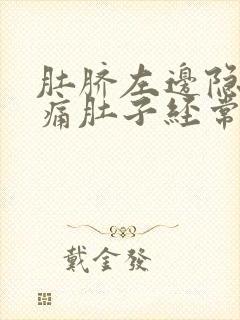 肚脐左邊隐
痛肚子経常
戴金發